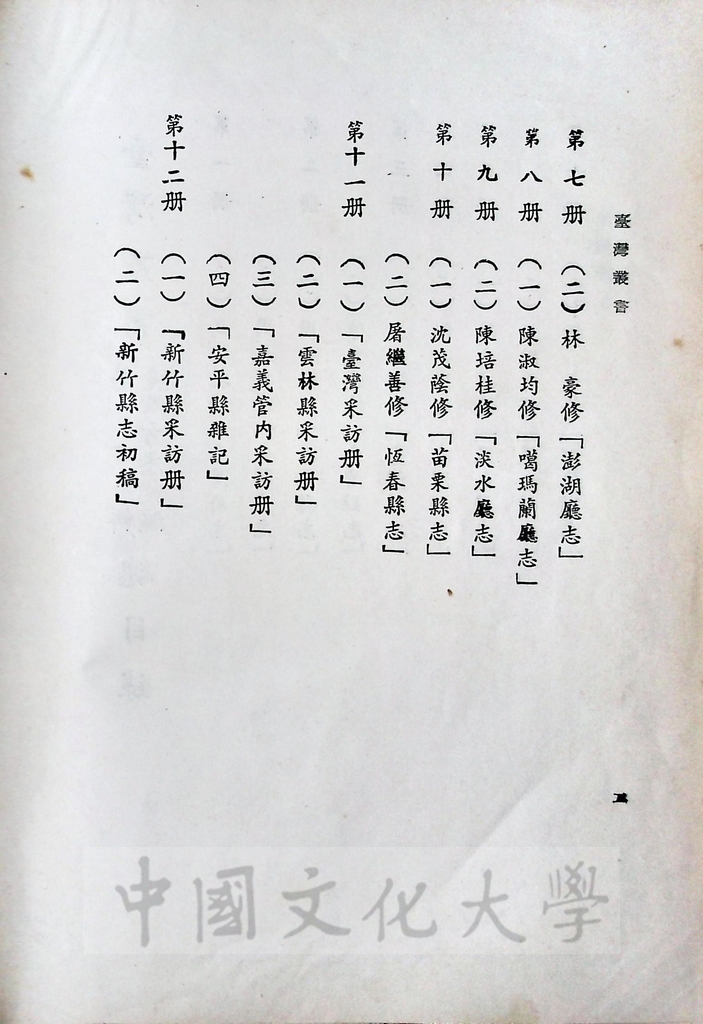 臺灣叢書
第七册 (二)林 豪修「澎湖廳志」
第八册 (一)陳淑均修「噶瑪蘭廳志」
第九册 (二)陳培桂修「淡水廳志」
第十册 (一)沈茂蔭修「苗栗縣志」
(二)屠繼善修「恆春縣志」
第十一册 (一)「臺灣采訪册」
(二)「雲林縣采訪册」
(三)「嘉義管內采訪册」
(四)「安平縣雜記」
第十二册 (一)「新竹縣采訪册」
(二)「新竹縣志初稿」
中國文化大學